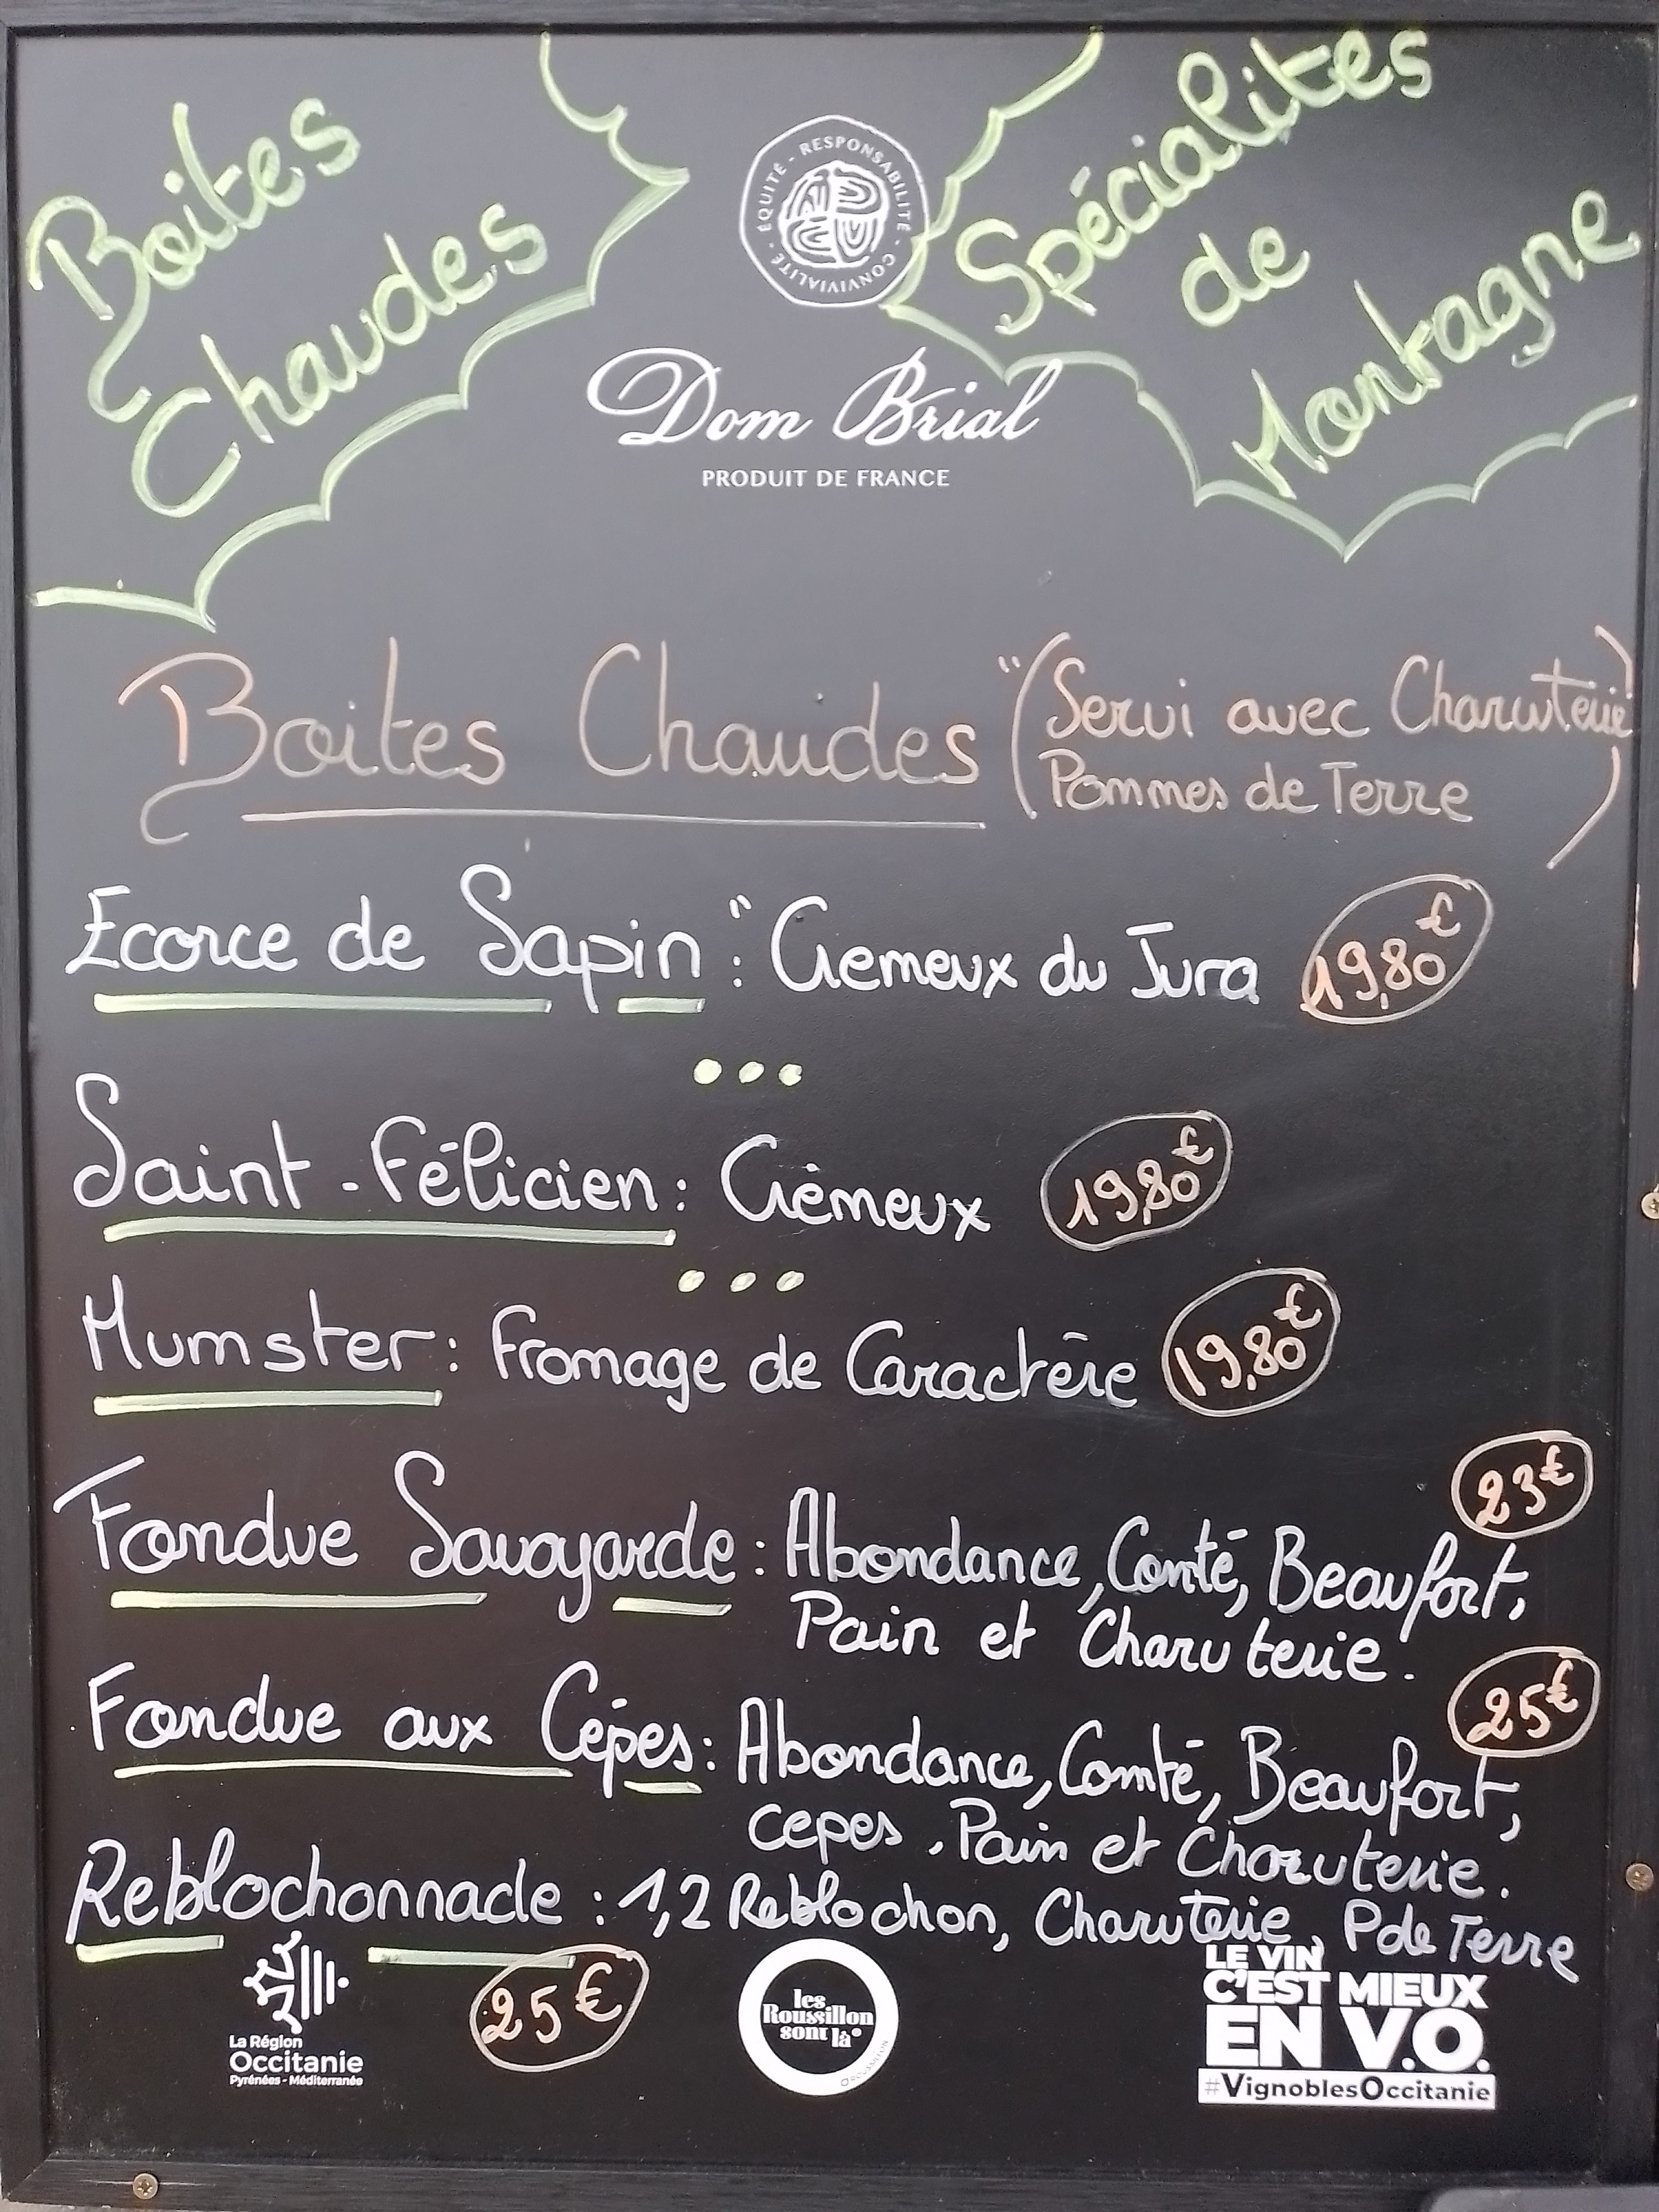 Boites
Chaudes
Spécialités
de
Montagne
ÉQUITÉ - RESPONSABILITÉ - CONVIVIALITÉ -
Dom Brial
PRODUIT DE FRANCE
Boites Chaudes "(Servi avec Charcuterie)
Pommes de Terre)
Ecorce de Sapin : "Cremeux du Jura 19,80€
Saint-Félicien : Crémeux 19,80€
Mumster : Fromage de Caractère 19,80€
23€
Fondue Savoyarde : Abondance, Comté, Beaufort,
Pain et Charcuterie.
25€
Fondue aux Cépes : Abondance, Comté, Beaufort,
cepes, Pain et Charcuterie.
Reblochonnade : 1,2 Reblochon, Charcuterie, P de Terre
25€
La Région
Occitanie
Pyrénées - Méditerranée
les
Roussillon
sont là
ROUSSILLON
LE VIN
C'EST MIEUX
EN V.O.
#VignoblesOccitanie